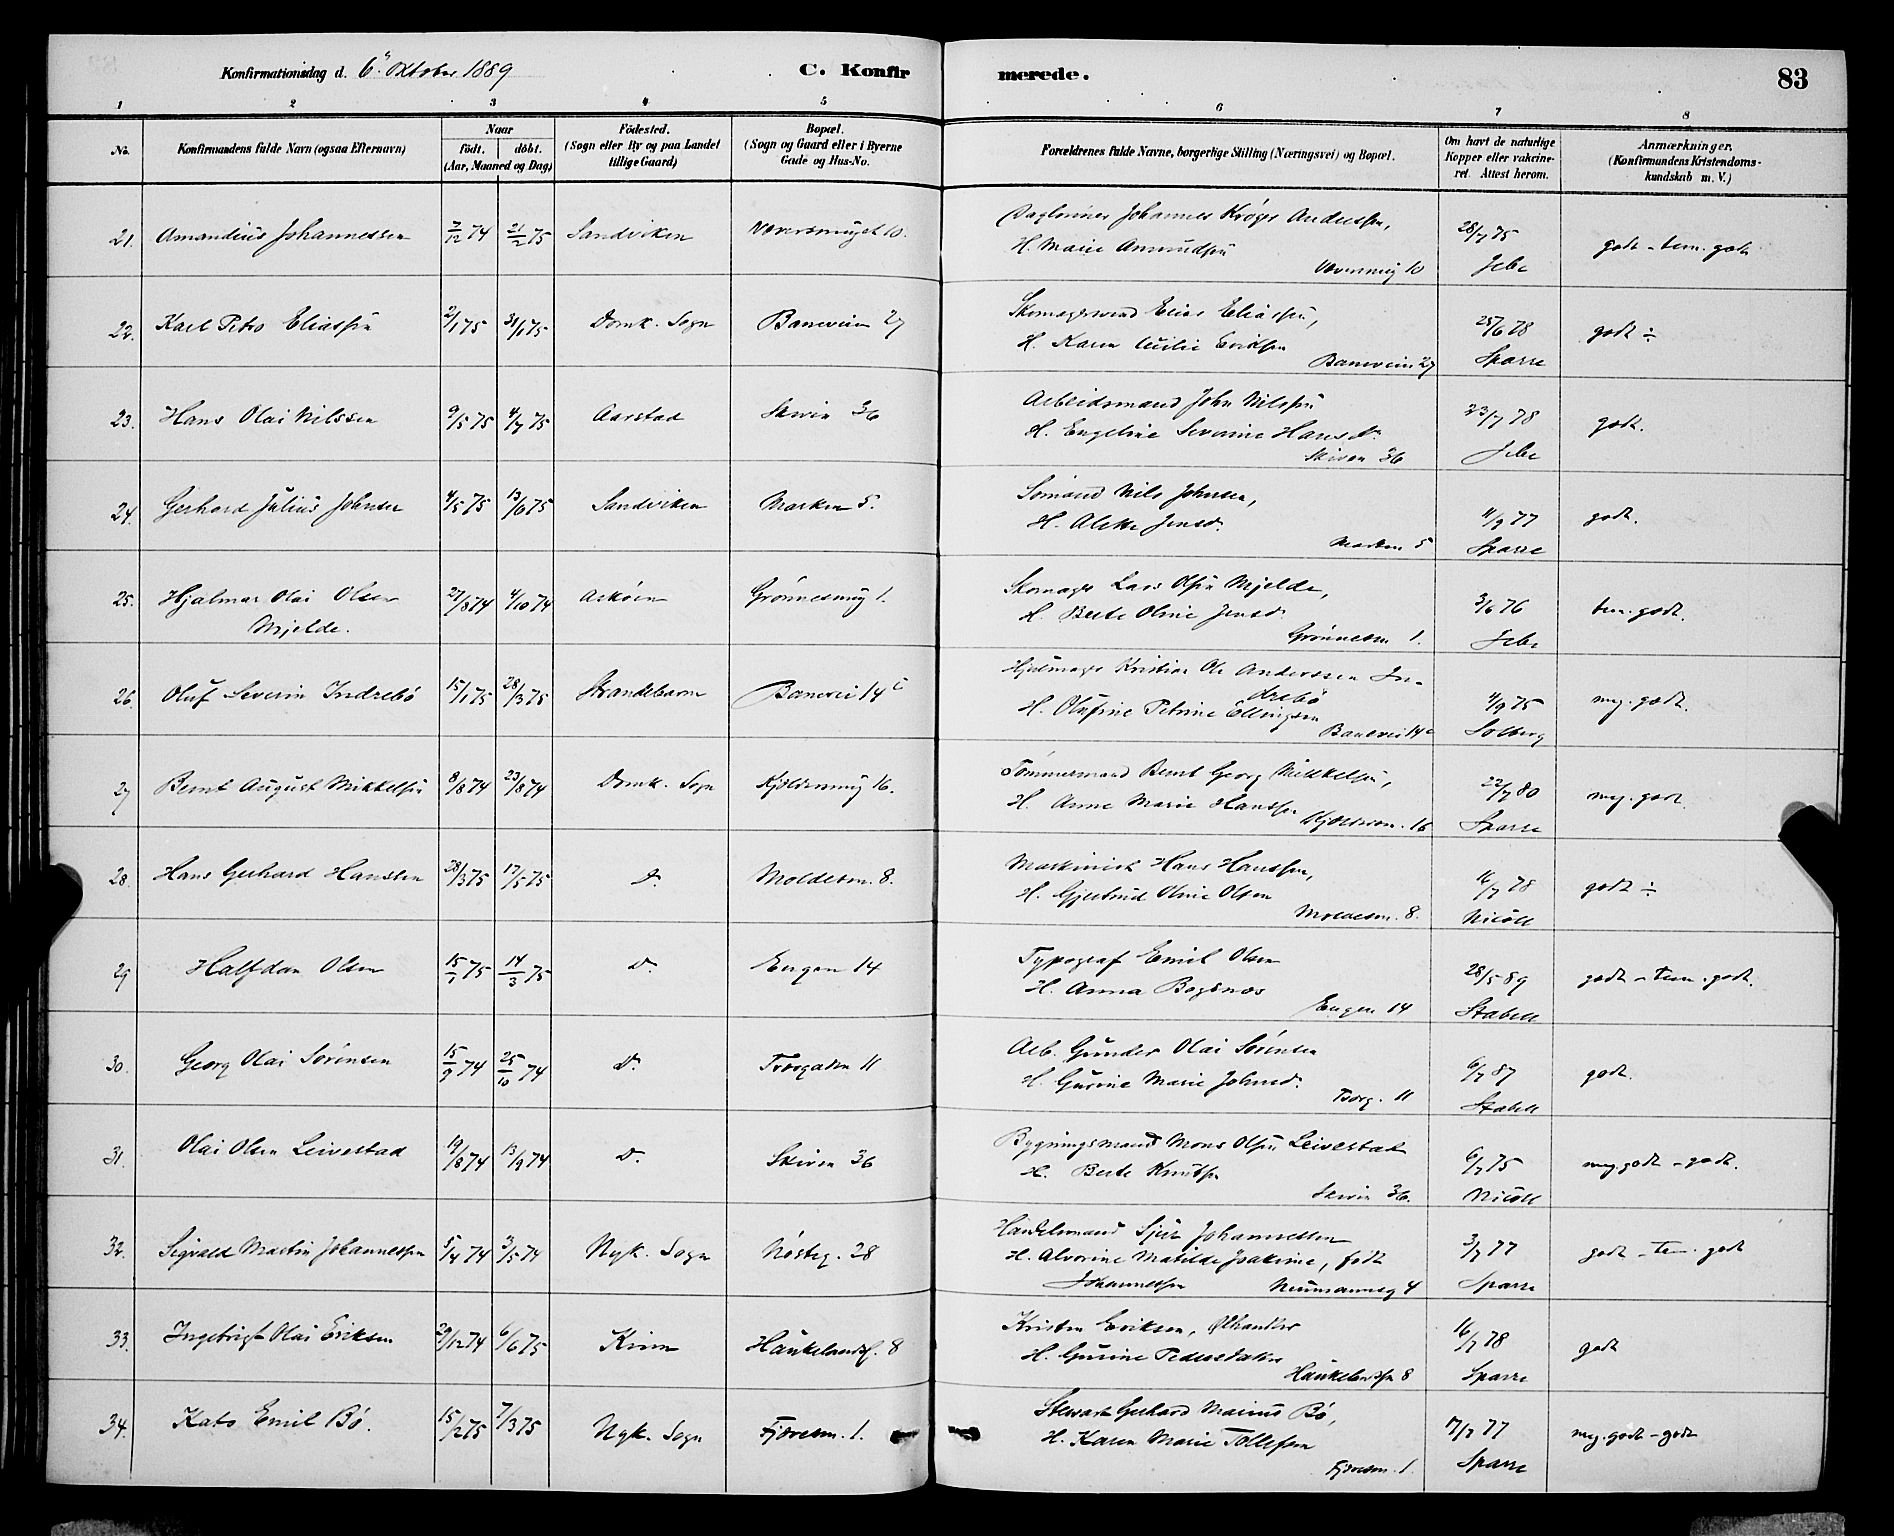 Konfirmationsdag d. 6. Oktober 1889 C. Konfirmerede. 83
1 2 3 4 5 6 7 8
No. Konfirmandens fulde Navn (ogsaa Efternavn) Naar födt. döbt. (Aar, Maaned og Dag) Födested. (Sogn eller By og paa Landet tillige Gaard) Bopæl. (Sogn og Gaard eller i Byerne Gade og Hus-No. Forældrenes fulde Navne, borgerlige Stilling (Næringsvei) og Bopæl. Om havt de naturlige Kopper eller vakcineret. Attest herom. Anmærkninger. (Konfirmandens Kristendomskundskab m. V.)
21. Amandius Johannessen 2/12 74 21/2 75 Sandviken Væversmuget 10. Daglönner Johannes Kröger Anderssen, 28/7 75 godt - tem. godt
H. Marie Amundsen
Væversmug 10 Jebe
22. Karl Petro Eliassen 2/1 75 31/1 75 Domk. Sogn Baneveien 27 Skomagersvend Elias Eliassen, 25/6 78 godt ÷
H. Karen Cecilie Eriksen
Baneveien 27 Sparre
23. Hans Olai Nilssen 9/5 75 4/7 75 Aarstad Skiven 36 Arbeidsmand John Nilssen 23/7 78 godt.
H. Engeline Severine Hansd.
Skiven 36 Jebe
24. Gerhard Julius Johnsen 4/5 75 13/6 75 Sandviken Marken 5. Sömand Nils Johnsen, 11/9 77 godt.
H. Alette Jensd.
Marken 5 Sparre
25. Hjalmar Olai Olsen Mjelde. 27/8 74 4/10 74 Asköen Grönnesmug 1. Skomager Lars Olsen Mjelde, 3/6 76 tem. godt.
H. Berte Oline Jensd.
Grönnesm 1. Jebe
26. Oluf Severin Indrebö 15/1 75 28/3 75 Strandebarm Banevei 14 c Hjulmager Kristian Ole Anderssen Indrebö 4/9 75 meg. godt.
H. Olufine Petrine Ellingsen
Banevei 14 c Solberg
27 Bernt August Mikkelsen 8/8 74 23/8 74 Domk. Sogn Kjeldersmug 16. Tömmermand Bernt Georg Mikkelsen, 22/7 80 meg. godt.
H. Anne Marie Hanssen
16 Sparre
28. Hans Gerhard Hanssen 28/3 75 17/5 75 D. Moldesm. 8. Maskinist Hans Hanssen, 16/7 78 godt ÷
H. Gjertrud Oline Olsen
Moldesm. 8. Nicoll
29 Halfdan Olsen 15/1 75 14/3 75 D. Engen 14 Typograf Emil Olsen 28/5 89 godt - tem. godt.
H. Anna Bogsnæs
Engen 14 Stabell
30. Georg Olai Sörensen 15/9 74 25/10 74 D. Torvgaden 11 Arb. Gunder Olai Sörensen 6/7 87 godt.
H. Gurine Marie Johnsd.
Torvg. 11 Stabell
31. Olai Olsen Leivestad 19/8 74 13/9 74 D. Skiven 36 Bygningsmand Mons Olsen Leivestad 6/7 75 meg. godt - godt.
H. Berte Knutsen
Skiven 36. Nicoll
32. Sigvald Martin Johannessen 5/4 74 3/5 74 Nyk. Sogn Nösteg. 28 Handelsmand Sjur Johannessen 3/7 77 godt - tem. godt
H. Alvorine Matilde Joakime, födt
Johannessen Neumannsg 4 Sparre
33. Ingebrigt Olai Eriksen 29/12 74 6/6 75 Kinn Haukelandsf. 8 Kristen Eriksen, Ölhandler 16/7 78 godt
H. Gurine Pedersdatter
8 Sparre
34. Kato Emil Bö. 15/2 75 7/3 75 Nyk. Sogn Fjæresm. 1. Stewart Gerhard Marius Bö, 17/7 77 meg. godt - godt
H. Karen Marie Tollefsen
Fjæresm. 1. Sparre